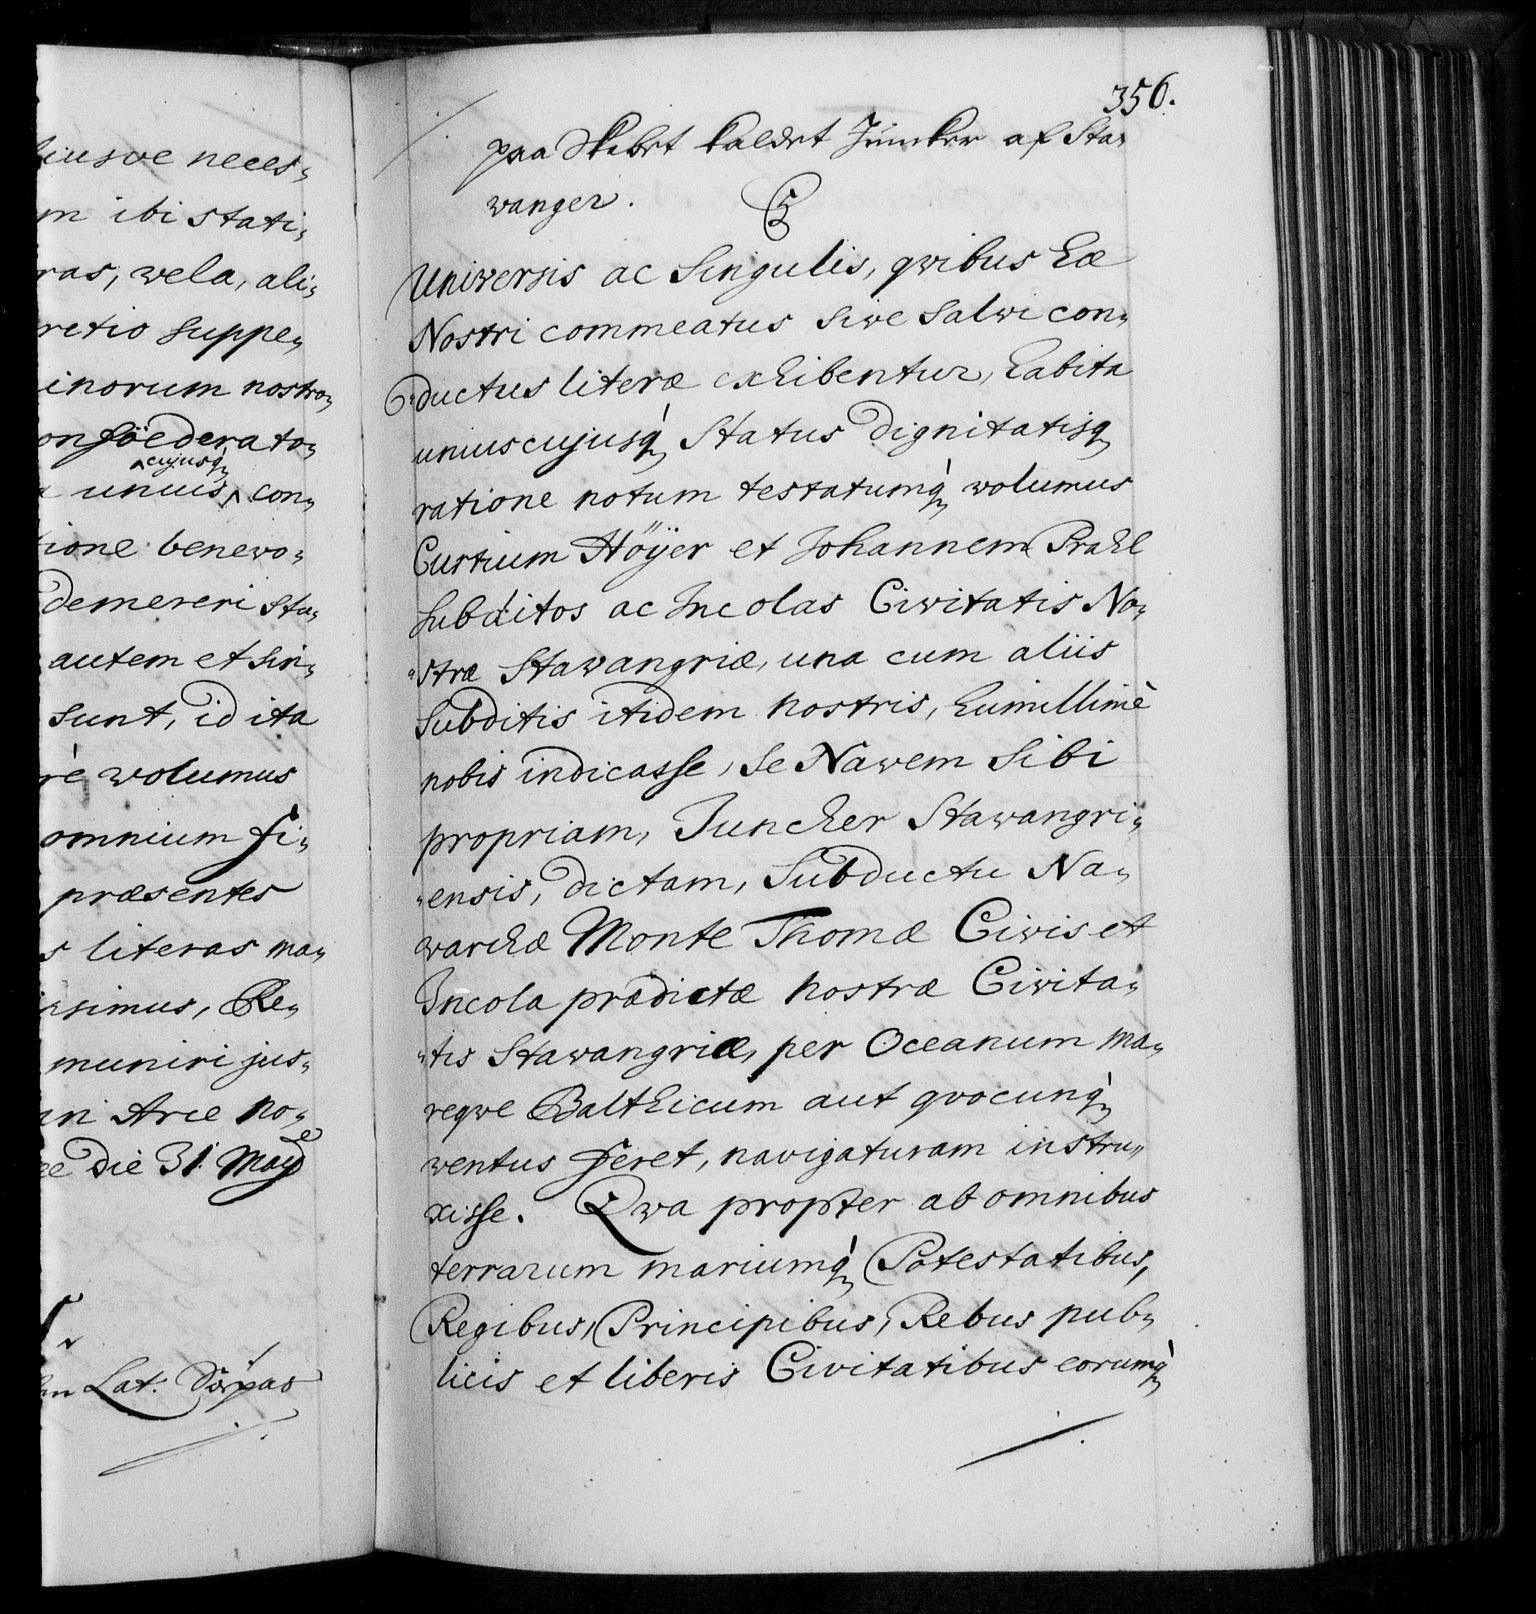 iusve neces„
m ibi stati„
ras, wela, ali„
retio suppe„
inorum nostro„
onföederato„
cujusq̃
unuis con„
tione benewo„
demereri stu„
autem et sin„
sunt, id ita
rè wolumus
omnium fi„
præsentes
s literas ma„
simus, Re„
muniri jus„
in Arce No„
die 31 Maÿ
Lat.
356.
paa Skibet kaldet Jüncker af Sta„
wanger.
Universis ac Singulis, qvibus hæ
Nostri commeatus sive Salwi con„
„ductus literæ exhibentur, habita
uniuscujusq̃ Status dignitatisq
ratione notum testatumq̃ wolumus
Curtium Höÿer et Johannem Prahl
Subditos ac Incolas Civitatis No„
„stræ Stawangriæ, una cum aliis
Subditis itidem nostris, humillimè
nobis indicasse, se Nawem Sibi
propriam, Juncher Stawangri„
„ensis, dictam, Subductu Na„
warchæ Monte Thomæ Civis et
Incola prædictæ nostræ Civita„
„tis Stawangriæ, per Oceanum ma„
reqve Balthicum aut qvocunq̃
wentus feret, navigaturam instru„
xisse. Qva propter ab omnibus
terrarum mariumq̃ Potestatibus,
Regibus, Principibus, Rebus pub„
licis et liberis Civitatibus eorumq̃